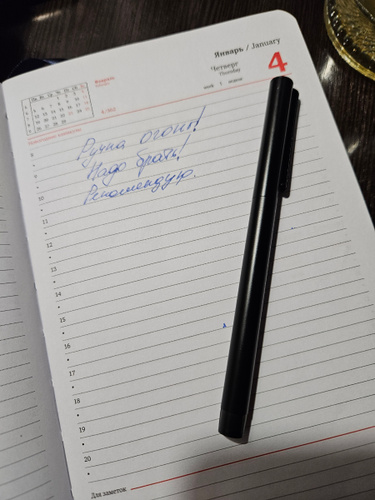 Январь / January
4
Четверг
Thursday
Февраль
Ручка огонь!
Надо брать!
Рекомендую.
8
9
10
11
12
13
14
15
16
17
18
19
20
Для заметок